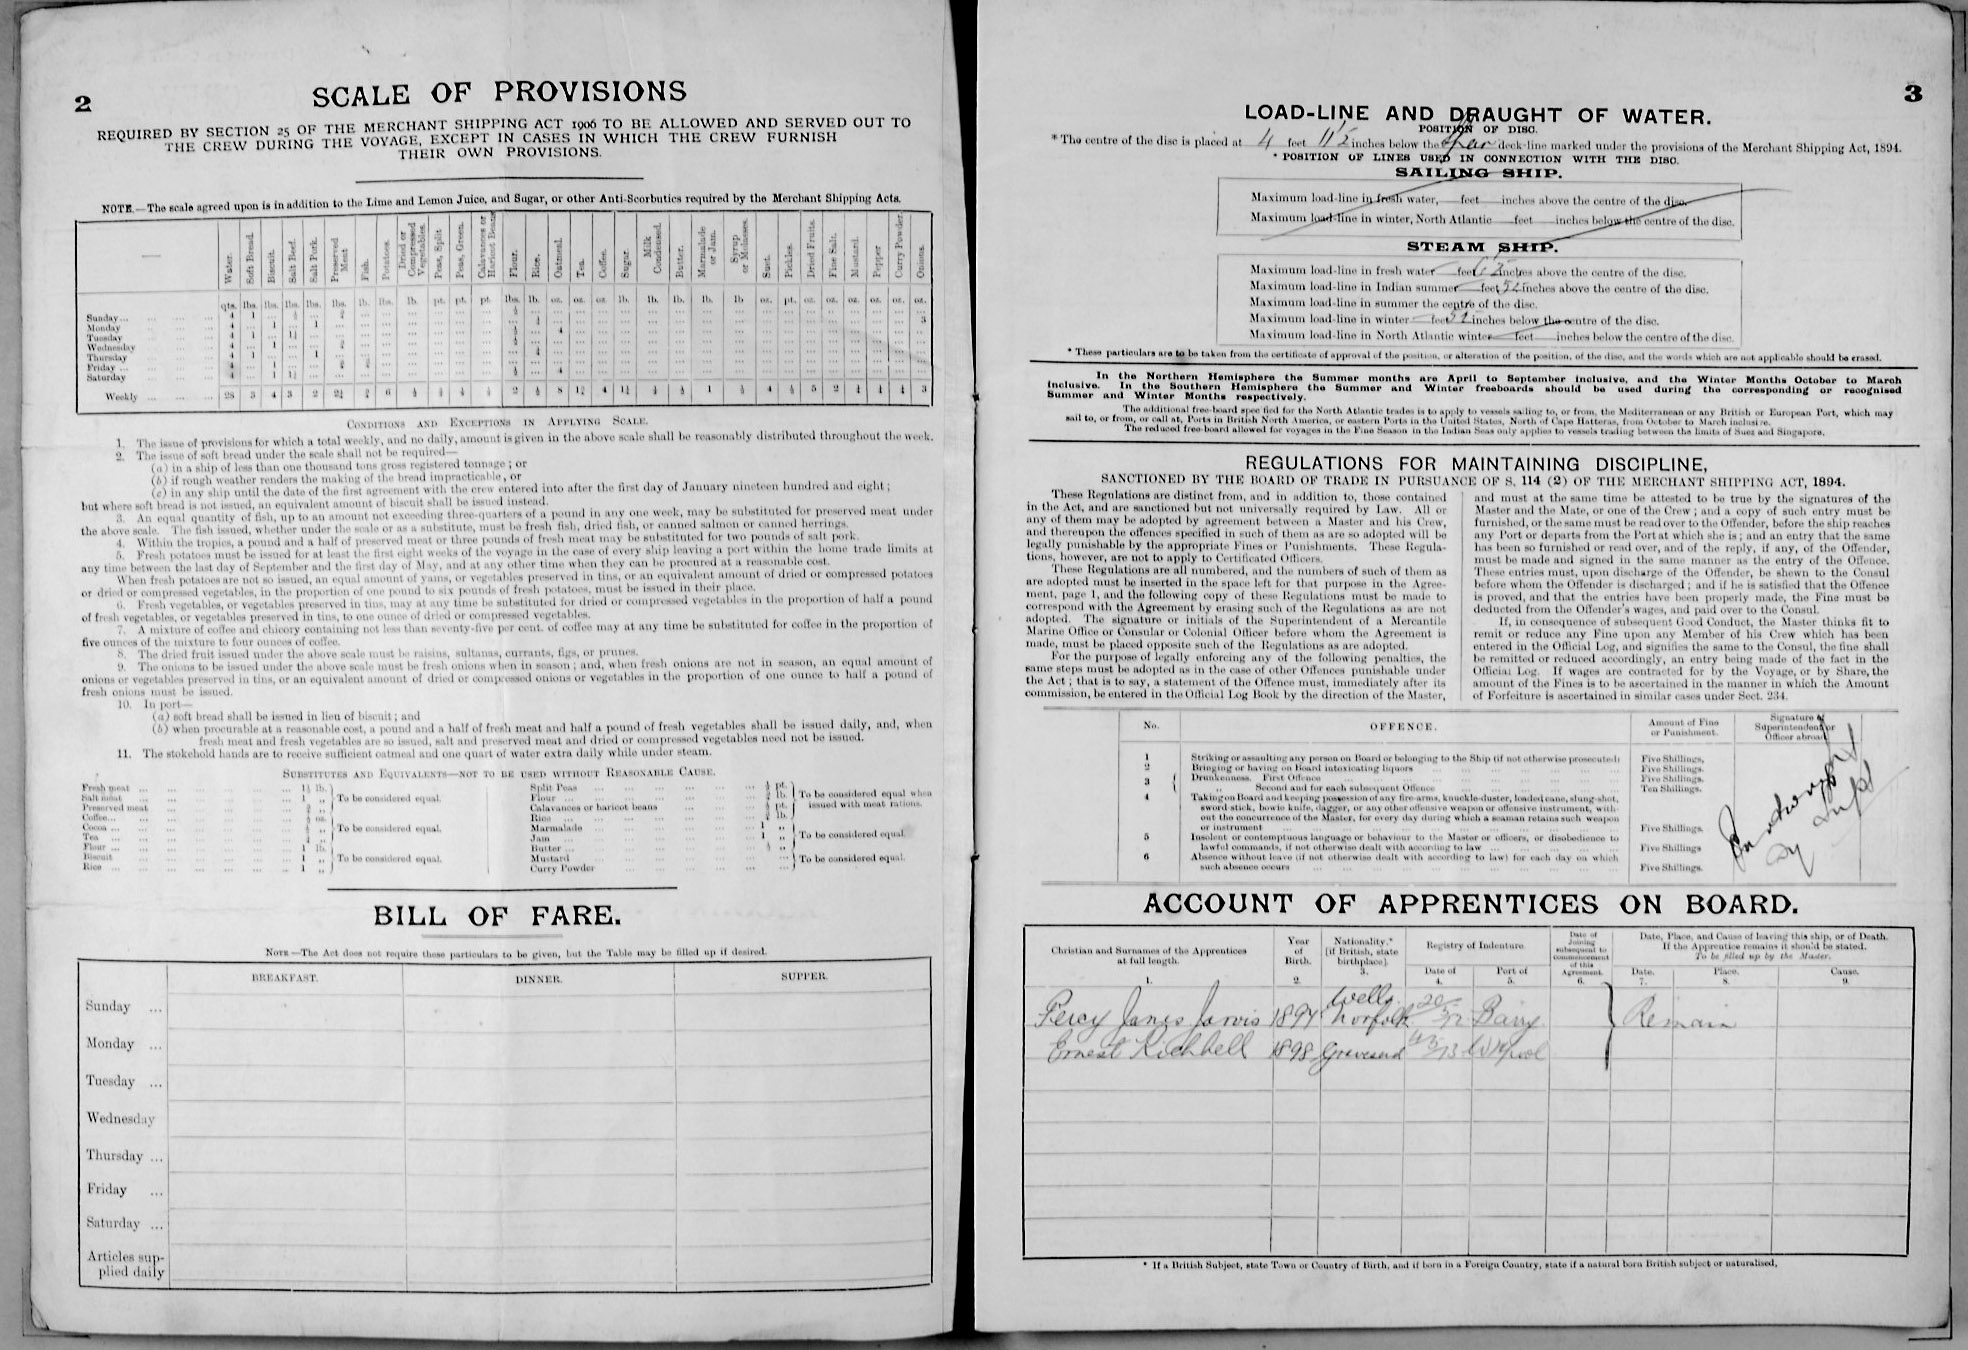 2
SCALE OF PROVISIONS
REQUIRED BY SECTION 25 OF THE MERCHANT SHIPPING ACT 1906 TO BE ALLOWED AND SERVED OUT TO
THE CREW DURING THE VOYAGE, EXCEPT IN CASES IN WHICH THE CREW FURNISH
THEIR OWN PROVISIONS.
NOTE.—The scale agreed upon is in addition to the Lime and Lemon Juice, and Sugar, or other Anti-Scorbutics required by the Merchant Shipping Acts.
Water. Soft Bread. Biscuit. Salt Beef. Salt Pork. Preserved Meat Fish. Potatoes. Dried or Compressed Vegetables. Peas, Split Peas, Green. Calavances or Haricot Beans Flour. Rice. Oatmeal. Tea. Coffee. Sugar. Milk Condensed. Butter. Marmalade or Jam. Syrup or Molasses. Suet. Pickles. Dried Fruits. Fine Salt. Mustard. Pepper Curry Powder. Onions.
qts. lbs. lbs. lbs. lbs. lbs. lb. lbs. lb. pt. pt. pt. lbs. lb. oz. oz. oz. lb. lb. lb. lb. lb oz. pt. oz. oz. oz. oz. oz. oz.
Sunday... 4 1
Monday 4 1 1
Tuesday 4 1 4
Wednesday 4 1
Thursday 4 1 1
Friday ... 4 1
Saturday 4 1 4
Weekly 28 3 4 3 2 6 2 8 4 1 4 5 2 3
CONDITIONS AND EXCEPTIONS IN APPLYING SCALE.
1. The issue of provisions for which a total weekly, and no daily, amount is given in the above scale shall be reasonably distributed throughout the week.
2. The issue of soft bread under the scale shall not be required—
(a) in a ship of less than one thousand tons gross registered tonnage; or
(b) if rough weather renders the making of the bread impracticable, or
(c) in any ship until the date of the first agreement with the crew entered into after the first day of January nineteen hundred and eight;
but where soft bread is not issued, an equivalent amount of biscuit shall be issued instead.
3. An equal quantity of fish, up to an amount not exceeding three-quarters of a pound in any one week, may be substituted for preserved meat under
the above scale. The fish issued, whether under the scale or as a substitute, must be fresh fish, dried fish, or canned salmon or canned herrings.
4. Within the tropics, a pound and a half of preserved meat or three pounds of fresh meat may be substituted for two pounds of salt pork.
5. Fresh potatoes must be issued for at least the first eight weeks of the voyage in the case of every ship leaving a port within the home trade limits at
any time between the last day of September and the first day of May, and at any other time when they can be procured at a reasonable cost.
When fresh potatoes are not so issued, an equal amount of yams, or vegetables preserved in tins, or an equivalent amount of dried or compressed potatoes
or dried or compressed vegetables, in the proportion of one pound to six pounds of fresh potatoes, must be issued in their place.
6. Fresh vegetables, or vegetables preserved in tins, may at any time be substituted for dried or compressed vegetables in the proportion of half a pound
of fresh vegetables, or vegetables preserved in tins, to one ounce of dried or compressed vegetables.
7. A mixture of coffee and chicory containing not less than seventy-five per cent. of coffee may at any time be substituted for coffee in the proportion of
five ounces of the mixture to four ounces of coffee.
8. The dried fruit issued under the above scale must be raisins, sultanas, currants, figs, or prunes.
9. The onions to be issued under the above scale must be fresh onions when in season; and, when fresh onions are not in season, an equal amount of
onions or vegetables preserved in tins, or an equivalent amount of dried or compressed onions or vegetables in the proportion of one ounce to half a pound of
fresh onions must be issued.
10. In port—
(a) soft bread shall be issued in lieu of biscuit; and
(b) when procurable at a reasonable cost, a pound and a half of fresh meat and half a pound of fresh vegetables shall be issued daily, and, when
fresh meat and fresh vegetables are so issued, salt and preserved meat and dried or compressed vegetables need not be issued.
11. The stokehold hands are to receive sufficient oatmeal and one quart of water extra daily while under steam.
SUBSTITUTES AND EQUIVALENTS—NOT TO BE USED WITHOUT REASONABLE CAUSE.
Fresh meat ... 1½ lb.
Salt meat 1 „ To be considered equal.
Preserved meat
Coffee...
Cocoa ... To be considered equal.
Tea
Flour ... 1 lb.
Biscuit 1 „ To be considered equal.
Rice ... 1 „
Split Peas pt.
Flour ... lb. To be considered equal when
Calavances or haricot beans pt. issued with meat rations.
Rice lb.
Marmalade 1 „
Jam 1 „ To be considered equal
Butter ...
Mustard
Curry Powder To be considered equal.
BILL OF FARE.
NOTE—The Act does not require these particulars to be given, but the Table may be filled up if desired.
BREAKFAST. DINNER. SUPPER.
Sunday ...
Monday ...
Tuesday ...
Wednesday
Thursday ...
Friday ...
Saturday ...
Articles sup-
plied daily
3
LOAD-LINE AND DRAUGHT OF WATER.
POSITION OF DISC.
* The centre of the disc is placed at 4 feet 11½ inches below the Spar deck-line marked under the provisions of the Merchant Shipping Act, 1894.
* POSITION OF LINES USED IN CONNECTION WITH THE DISC.
SAILING SHIP.
Maximum load-line in fresh water, feet inches above the centre of the disc.
Maximum load-line in winter, North Atlantic feet inches below the centre of the disc.
STEAM SHIP.
Maximum load-line in fresh water feet inches above the centre of the disc.
Maximum load-line in Indian summer feet 5½ inches above the centre of the disc.
Maximum load-line in summer the centre of the disc.
Maximum load-line in winter feet 5½ inches below the centre of the disc.
Maximum load-line in North Atlantic winter feet inches below the centre of the disc.
* These particulars are to be taken from the certificate of approval of the position, or alteration of the position, of the disc, and the words which are not applicable should be erased.
In the Northern Hemisphere the Summer months are April to September inclusive, and the Winter Months October to March
inclusive. In the Southern Hemisphere the Summer and Winter freeboards should be used during the corresponding or recognised
Summer and Winter Months respectively.
The additional free-board specified for the North Atlantic trades is to apply to vessels sailing to, or from, the Mediterranean or any British or European Port, which may
sail to, or from, or call at, Ports in British North America, or eastern Ports in the United States, North of Cape Hatteras, from October to March inclusive.
The reduced free-board allowed for voyages in the Fine Season in the Indian Seas only applies to vessels trading between the limits of Suez and Singapore.
REGULATIONS FOR MAINTAINING DISCIPLINE,
SANCTIONED BY THE BOARD OF TRADE IN PURSUANCE OF S. 114 (2) OF THE MERCHANT SHIPPING ACT, 1894.
These Regulations are distinct from, and in addition to, those contained
in the Act, and are sanctioned but not universally required by Law. All or
any of them may be adopted by agreement between a Master and his Crew,
and thereupon the offences specified in such of them as are so adopted will be
legally punishable by the appropriate Fines or Punishments. These Regula-
tions, however, are not to apply to Certificated Officers.
These Regulations are all numbered, and the numbers of such of them as
are adopted must be inserted in the space left for that purpose in the Agree-
ment, page 1, and the following copy of these Regulations must be made to
correspond with the Agreement by erasing such of the Regulations as are not
adopted. The signature or initials of the Superintendent of a Mercantile
Marine Office or Consular or Colonial Officer before whom the Agreement is
made, must be placed opposite such of the Regulations as are adopted.
For the purpose of legally enforcing any of the following penalties, the
same steps must be adopted as in the case of other Offences punishable under
the Act; that is to say, a statement of the Offence must, immediately after its
commission, be entered in the Official Log Book by the direction of the Master,
and must at the same time be attested to be true by the signatures of the
Master and the Mate, or one of the Crew; and a copy of such entry must be
furnished, or the same must be read over to the Offender, before the ship reaches
any Port or departs from the Port at which she is; and an entry that the same
has been so furnished or read over, and of the reply, if any, of the Offender,
must be made and signed in the same manner as the entry of the Offence.
These entries must, upon discharge of the Offender, be shown to the Consul
before whom the Offender is discharged; and if he is satisfied that the Offence
is proved, and that the entries have been properly made, the Fine must be
deducted from the Offender's wages, and paid over to the Consul.
If, in consequence of subsequent Good Conduct, the Master thinks fit to
remit or reduce any Fine upon any Member of his Crew which has been
entered in the Official Log, and signifies the same to the Consul, the fine shall
be remitted or reduced accordingly, an entry being made of the fact in the
Official Log. If wages are contracted for by the Voyage, or by Share, the
amount of the Fines is to be ascertained in the manner in which the Amount
of Forfeiture is ascertained in similar cases under Sect. 234.
No. OFFENCE. Amount of Fine or Punishment. Signature of Superintendent or Officer abroad
1 Striking or assaulting any person on Board or belonging to the Ship (if not otherwise prosecuted) Five Shillings,
2 Bringing or having on Board intoxicating liquors Five Shillings.
3 Drunkenness. First Offence Five Shillings.
„ Second and for each subsequent Offence Ten Shillings.
4 Taking on Board and keeping possession of any fire-arms, knuckle-duster, loaded cane, slung-shot,
sword stick, bowie knife, dagger, or any other offensive weapon or offensive instrument, with-
out the concurrence of the Master, for every day during which a seaman retains such weapon
or instrument Five Shillings
5 Insolent or contemptuous language or behaviour to the Master or officers, or disobedience to
lawful commands, if not otherwise dealt with according to law Five Shillings
6 Absence without leave (if not otherwise dealt with according to law) for each day on which
such absence occurs Five Shillings.
Dy Supt
ACCOUNT OF APPRENTICES ON BOARD.
Christian and Surnames of the Apprentices at full length. Year of Birth. Nationality.* [if British, state birthplace]. Registry of Indenture. Date of Joining subsequent to commencement of this Agreement. Date, Place, and Cause of leaving this ship, or of Death. If the Apprentice remains it should be stated. To be filled up by the Master.
Date of Port of Date. Place. Cause.
1. 2. 3. 4. 5. 6. 7. 8. 9.
Percy James Jarvis 1897 Wells Norfolk 20/5/12 Barry Remain
Ernest Kichbell 1898 Gravesend W Hpool
* If a British Subject, state Town or Country of Birth, and if born in a Foreign Country, state if a natural born British subject or naturalised,